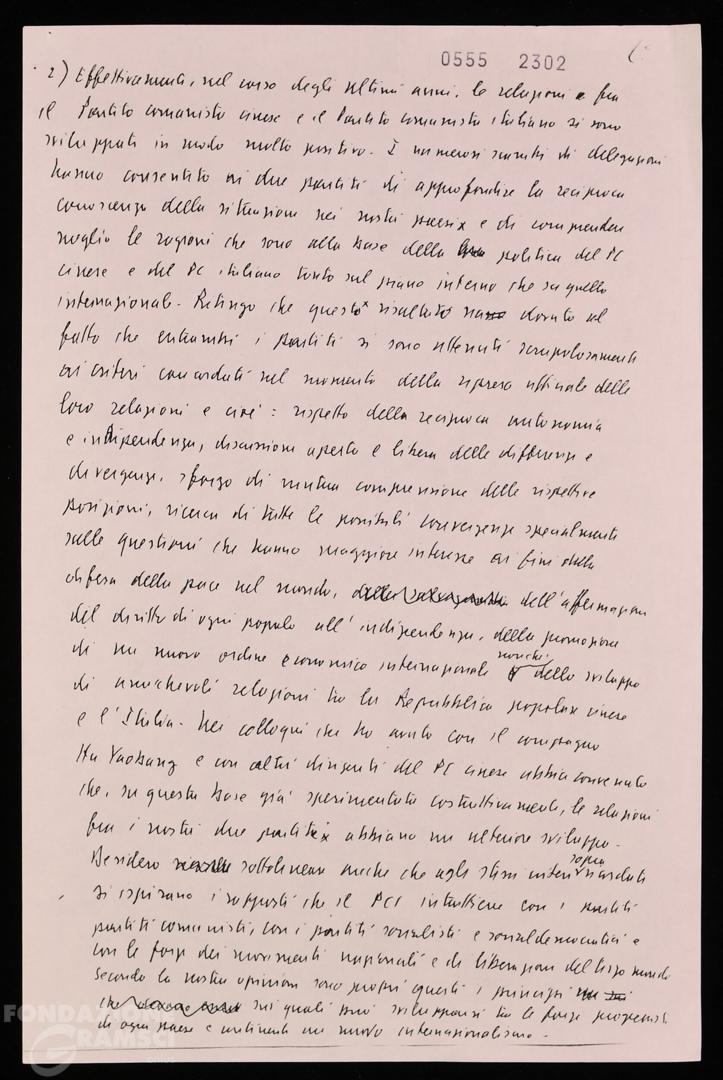 0555 2302
2) Effettivamente, nel corso degli ultimi anni, le relazioni fra
il Partito comunista cinese e il Partito comunista italiano si sono
sviluppati in modo molto positivo. I numerosi scambi di delegazioni
hanno consentito ai due partiti di approfondire la reciproca
conoscenza della situazione nei nostri paesi e di comprendere
meglio le ragioni che sono alla base della politica del PC
cinese e del PC italiano tanto sul piano interno che su quello
internazionale. Ritengo che questo risultato dovuto al
fatto che entrambi i partiti si sono attenuti scrupolosamente
ai criteri concordati nel momento della ripresa ufficiale delle
loro relazioni e cioè: rispetto della reciproca autonomia
e indipendenza, discussione aperta e libera delle differenze e
divergenze, sforzo di mutua comprensione delle rispettive
posizioni, ricerca di tutte le possibili convergenze specialmente
sulle questioni che hanno maggiore interesse ai fini della
difesa della pace nel mondo, dell'affermazione
del diritto di ogni popolo all'indipendenza, della promozione
di un nuovo ordine economico internazionale nonché dello sviluppo
di amichevoli relazioni tra la Repubblica popolare cinese
e l'Italia. Nei colloqui che ho avuto con il compagno
Hu Yaobang e con altri dirigenti del PC cinese abbia convenuto
che, su questa base già sperimentata costruttivamente, le relazioni
fra i nostri due partiti abbiano un ulteriore sviluppo.
Desidero sottolineare anche che agli stessi criteri sopra ricordati
si ispirano i rapporti che il PCI intrattiene con i partiti
partiti comunisti, con i partiti socialisti e socialdemocratici e
con le forze dei movimenti nazionali e di liberazione del terzo mondo
Secondo la nostra opinione sono proprio questi i principi
sui quali può svilupparsi tra le forze progressiste
di ogni paese e continente un nuovo internazionalismo.
FONDAZIONE
GRAMSCI